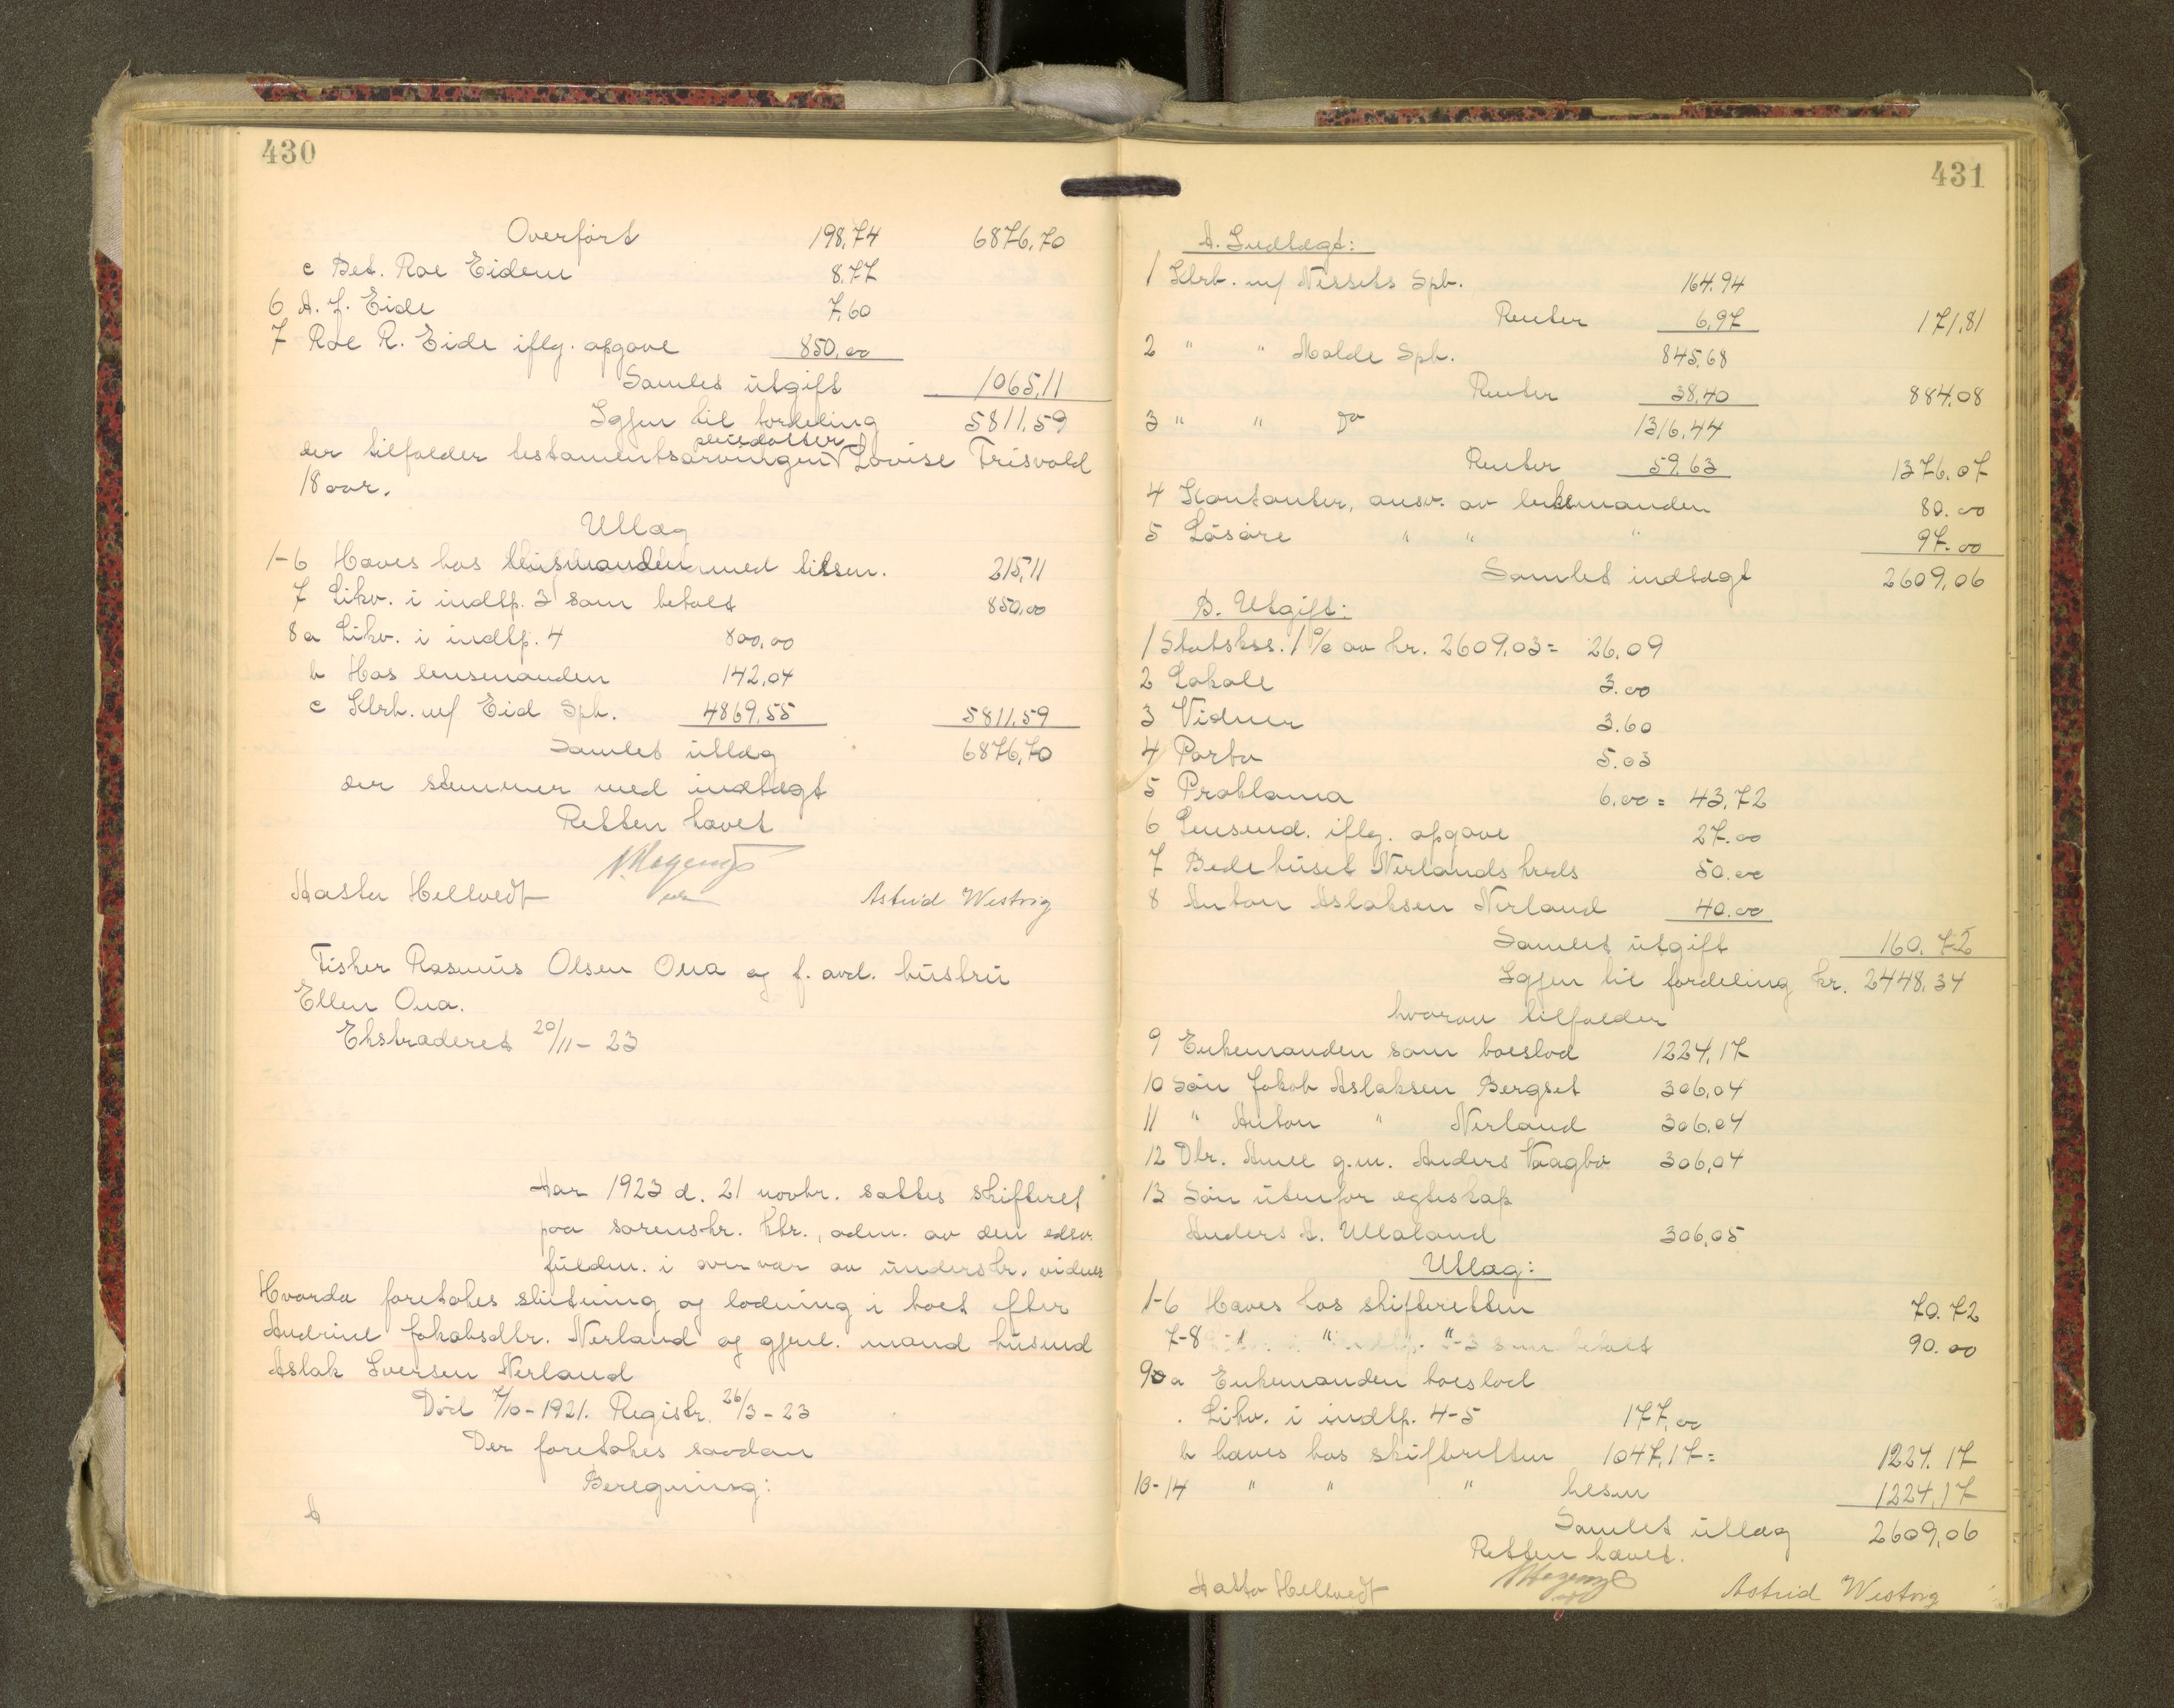 430
Overført 198,74 6876,70
c Bet. Roe Eidem 8.77
6 A. J. Eide 7,60
7 Roe R. Eide iflg. opgave 850,00
Samlet utgift 1065,11
Igjen til fordeling 5811,59
pleiedatter
der tilfalder testamentsarvingen Lovise Trisvold
18 aar.
Utlæg
1-6 Haves hos lensmanden med tilsm. 215,11
7 Likv. i indtp. 3 som betalt 850,00
8a Likv. i indtp. 4 800,00
b Hos lensmanden 142,04
c Klrb. m/ Eid Spb. 4869,55 5811,59
Samlet utlæg 6876,70
der stemmer med indtægt
Retten hævet
Aasta Hellvedt Astrid Westvig
Fisker Rasmus Olsen Ona og f. avd. hustru
Ellen Ona.
Ekstraderet 20/11 - 23
Aar 1923 d. 21 novbr. sattes skifteret
paa sorenskr. ktr., adm. av den edsv.
fuldm. i overvær av underskr. vidner
Hvorda foretokes slutning og lodning i boet efter
Andrine Jakobsdtr. Nerland og gjenl. mand husmd
Aslak Iversen Nerland
Död 7/10 - 1921. Registr. 26/3 - 23
Der foretokes saadan
Beregning:
A
431
A. Indtægt:
1 Klrb. m/ Nessets Spb. 164.94
Renter 6,97 171,81
2 " " Molde Spb. 845,68
Renter 38,40 884,08
3 " " Do 1316,44
Renter 59,63 1376,07
4 Kontanter, ansv. av lensmanden 80.00
5 Løsøre " " " 97.00
Samlet indtægt 2609,06
B. Utgift:
1 Statskss. 1 % av kr. 2609,03 = 26.09
2 Lokale 3.00
3 Vidner 3.60
4 Porto 5.03
5 Proklama 6.00 = 43,72
6 Lensmd. iflg. opgave 27.00
7 Bedehuset Nerlands kreds 50.00
8 Anton Aslaksen Nerland 40.00
Samlet utgift 160.72
Igjen til fordeling kr. 2448,34
hvorav tilfalder
9 Enkemanden som boeslod 1224,17
10 Søn Jakob Aslaksen Bergset 306,04
11 " Anton " Nerland 306,04
12 Dtr. Anne g.m. Anders Vaagbø 306,04
13 Søn utenfor egteskap
Anders A. Ullaland 306,05
Utlæg:
1-6 Haves hos skifteretten 70.72
7-8 " " -3 som betalt 90.00
9 a Enkemanden boeslod
. Likv. i indtp. 4-5 177,00
b haves hos skifteretten 1047,17 = 1224.17
10-14 " " " 1224,17
Samlet utlæg 2609,06
Retten hævet.
Aasta Hellvedt Astrid Westvig